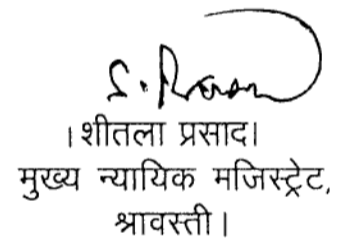 ।शीतला प्रसाद।
मुख्य न्यायिक मजिस्ट्रेट,
श्रावस्ती।